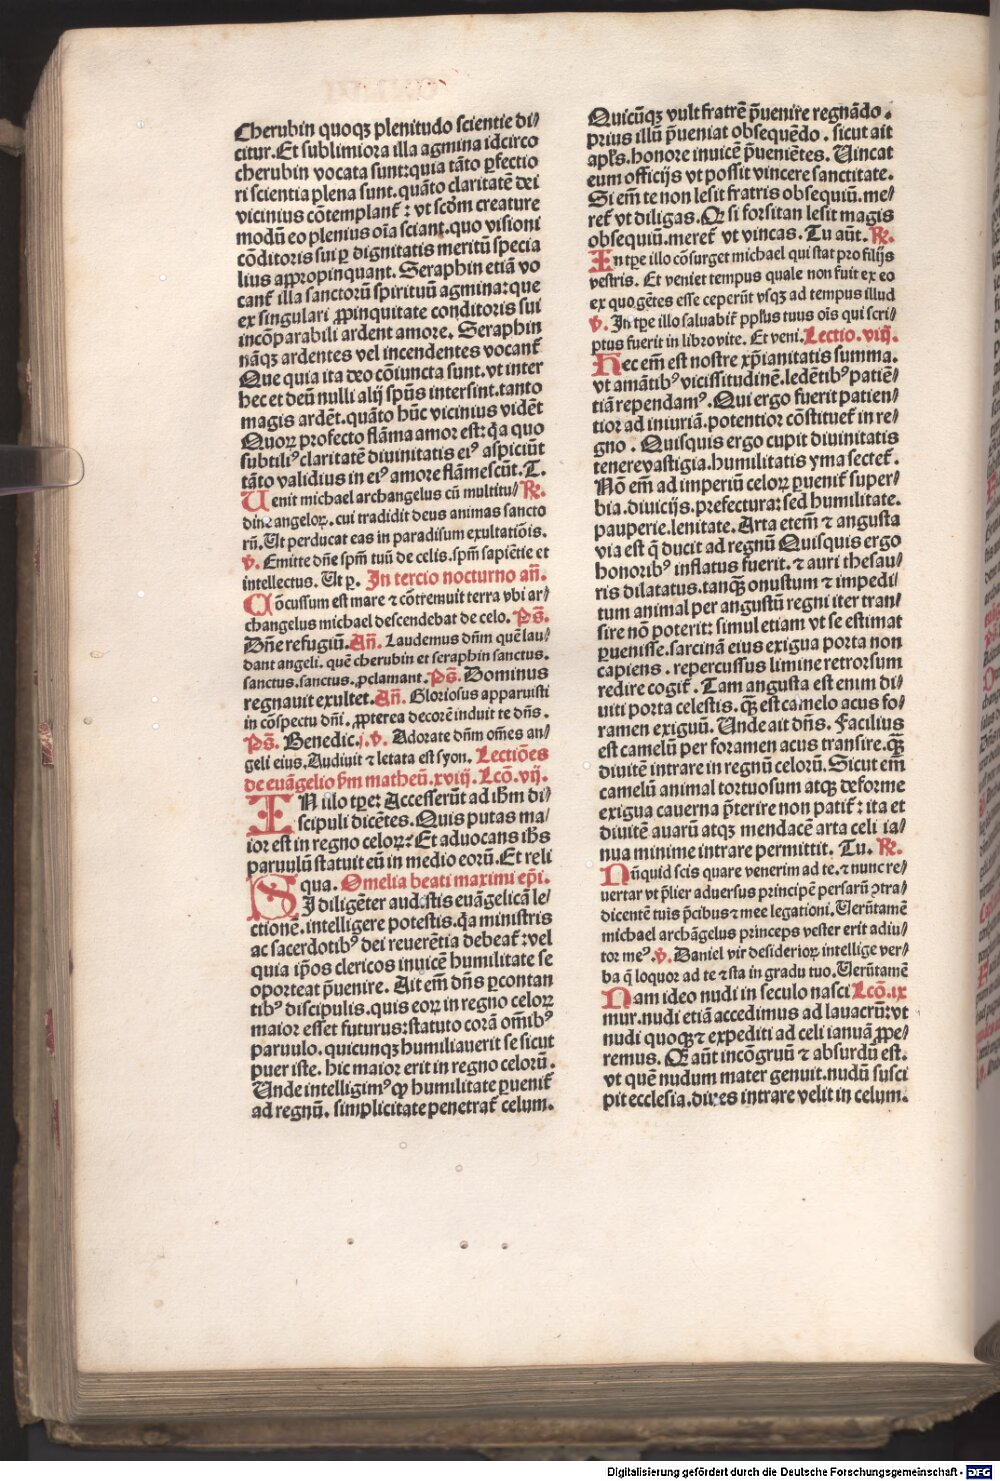 Cherubin quoqꝫ plenitudo scientie di/
citur. Et sublimiora illa agmina idcirco
cherubin vocata sunt: quia tãto ꝑfectio
ri scientia plena sunt. quãto claritatẽ dei
vicinius cõtemplant᷑: vt scd̃m creature
modũ eo plenius oĩa sciant. quo visioni
cõditoris sui ꝑ dignitatis meritũ specia
lius appropinquant. Seraphin etiã vo
cant᷑ illa sanctorũ spirituũ agmina: que
ex singulari ꝓpinquitate conditoris sui
incõparabili ardent amore. Seraphin
nãqꝫ ardentes vel incendentes vocant᷑
Que quia ita deo cõiuncta sunt. vt inter
hec et deũ nulli alij spũs intersint. tanto
magis ardẽt. quãto hũc vicinius vidẽt
Quoꝝ profecto flãma amor est: q̃a quo
subtiliꝰ claritatẽ diuinitatis eiꝰ aspiciũt
tãto validius in eiꝰ amore flãmescũt. T.
Uenit michael archangelus cũ multitu/ ℞.
dine angeloꝝ. cui tradidit deus animas sancto
rũ. Ut perducat eas in paradisum exultatiõis.
℣. Emitte dñe spm̃ tuũ de celis. spm̃ sapiẽtie et
intellectus. Ut ꝑ. In tercio nocturno añ.
Cõcussum est mare ⁊ cõtremuit terra vbi ar/
changelus michael descendebat de celo. Ps̃.
Dñe refugiũ. Añ. Laudemus dñm quẽ lau/
dant angeli. quẽ cherubin et seraphin sanctus.
sanctus. sanctus. ꝓclamant. Ps̃. Dominus
regnauit exultet. Añ. Gloriosus apparuisti
in cõspectu dñi. ꝓpterea decorẽ induit te dñs.
Ps̃. Benedic. j. ℣. Adorate dñm oẽs an/
geli eius. Audiuit ⁊ letata est syon. Lectiões
de euãgelio ẜm matheũ. xviij. Lcõ. vij.
IN illo tꝑe: Accesserũt ad ihm̃ di/
scipuli dicẽtes. Quis putas ma/
ior est in regno celoꝝ? Et aduocans ih̃s
paruulũ statuit eũ in medio eorũ. Et reli
qua. Omelia beati maximi ep̃i.
SI diligẽter audistis euãgelicã le/
ctionẽ. intelligere potestis. q̃a ministris
ac sacerdotibꝰ dei reuerẽtia debeat᷑: vel
quia ip̃os clericos inuicẽ humilitate se
oporteat p̃uenire. Ait em̃ dñs ꝑcontan
tibꝰ discipulis. quis eoꝝ in regno celoꝝ
maior esset futurus: statuto corã om̃ibꝰ
paruulo. quicunqꝫ humiliauerit se sicut
puer iste. hic maior erit in regno celorũ.
Unde intelligimꝰ ꝙ humilitate ꝑuenit᷑
ad regnũ. simplicitate penetrat᷑ celum.
Quicũqꝫ vult fratrẽ p̃uenire regnãdo.
prius illũ p̃ueniat obsequẽdo. sicut ait
apl̃s. honore inuicẽ p̃ueniẽtes. Uincat
eum officijs vt possit vincere sanctitate.
Si em̃ te non lesit fratris obsequiũ. me/
ret᷑ vt diligas. Ꝙ si forsitan lesit magis
obsequiũ. meret᷑ vt vincas. Tu aũt. ℞.
In tꝑe illo cõsurget michael qui stat pro filijs
vestris. Et veniet tempus quale non fuit ex eo
ex quo gẽtes esse ceperũt vsqꝫ ad tempus illud
℣. In tꝑe illo saluabit᷑ pp̃lus tuus oĩs qui scri/
ptus fuerit in libro vite. Et veni. Lectio. viij.
Hec em̃ est nostre xp̃ianitatis summa.
vt amãtibꝰ vicissitudinẽ. ledẽtibꝰ patiẽ/
tiã rependamꝰ. Qui ergo fuerit patien/
tior ad iniuriã. potentior cõstituet᷑ in re/
gno. Quisquis ergo cupit diuinitatis
tenere vastigia. humilitatis yma sectet᷑.
Nõ em̃ ad imperiũ celoꝝ puenit᷑ super/
bia. diuicijs. prefectura: sed humilitate.
pauperie. lenitate. Arta etem̃ ⁊ angusta
via est q̃ ducit ad regnũ Quisquis ergo
honoribꝰ inflatus fuerit. ⁊ auri thesau/
ris dilatatus. tanqꝫ̃ onustum ⁊ impedi/
tum animal per angustũ regni iter tran/
sire nõ poterit: simul etiam vt se estimat
ꝑuenisse. sarcinã eius exigua porta non
capiens. repercussus limine retrorsum
redire cogit᷑. Tam angusta est enim di/
uiti porta celestis. qꝫ̃ est camelo acus fo/
ramen exiguũ. Unde ait dñs. Facilius
est camelũ per foramen acus transire. qꝫ̃
diuitẽ intrare in regnũ celorũ. Sicut em̃
camelũ animal tortuosum atqꝫ deforme
exigua cauerna p̃terire non patit᷑: ita et
diuitẽ auarũ atqꝫ mendacẽ arta celi ia/
nua minime intrare permittit. Tu. ℞.
Nũquid scis quare venerim ad te. ⁊ nunc re/
uertar vt p̃lier aduersus principẽ persarũ ↄtra/
dicentẽ tuis p̃cibus ⁊ mee legationi. Uerũtamẽ
michael archãgelus princeps vester erit adiu/
tor meꝰ. ℣. Daniel vir desiderioꝝ intellige ver/
ba q̃ loquor ad te ⁊ sta in gradu tuo. Uerũtamẽ
Nam ideo nudi in seculo nasci Lcõ. ix
mur. nudi etiã accedimus ad lauacrũ: vt
nudi quoqꝫ ⁊ expediti ad celi ianuã ꝓpe/
remus. Ꝙ aũt incõgruũ ⁊ absurdũ est.
vt quẽ nudum mater genuit. nudũ susci
pit ecclesia. diues intrare velit in celum.
Digitalisierung gefördert durch die Deutsche Forschungsgemeinschaft - DFG